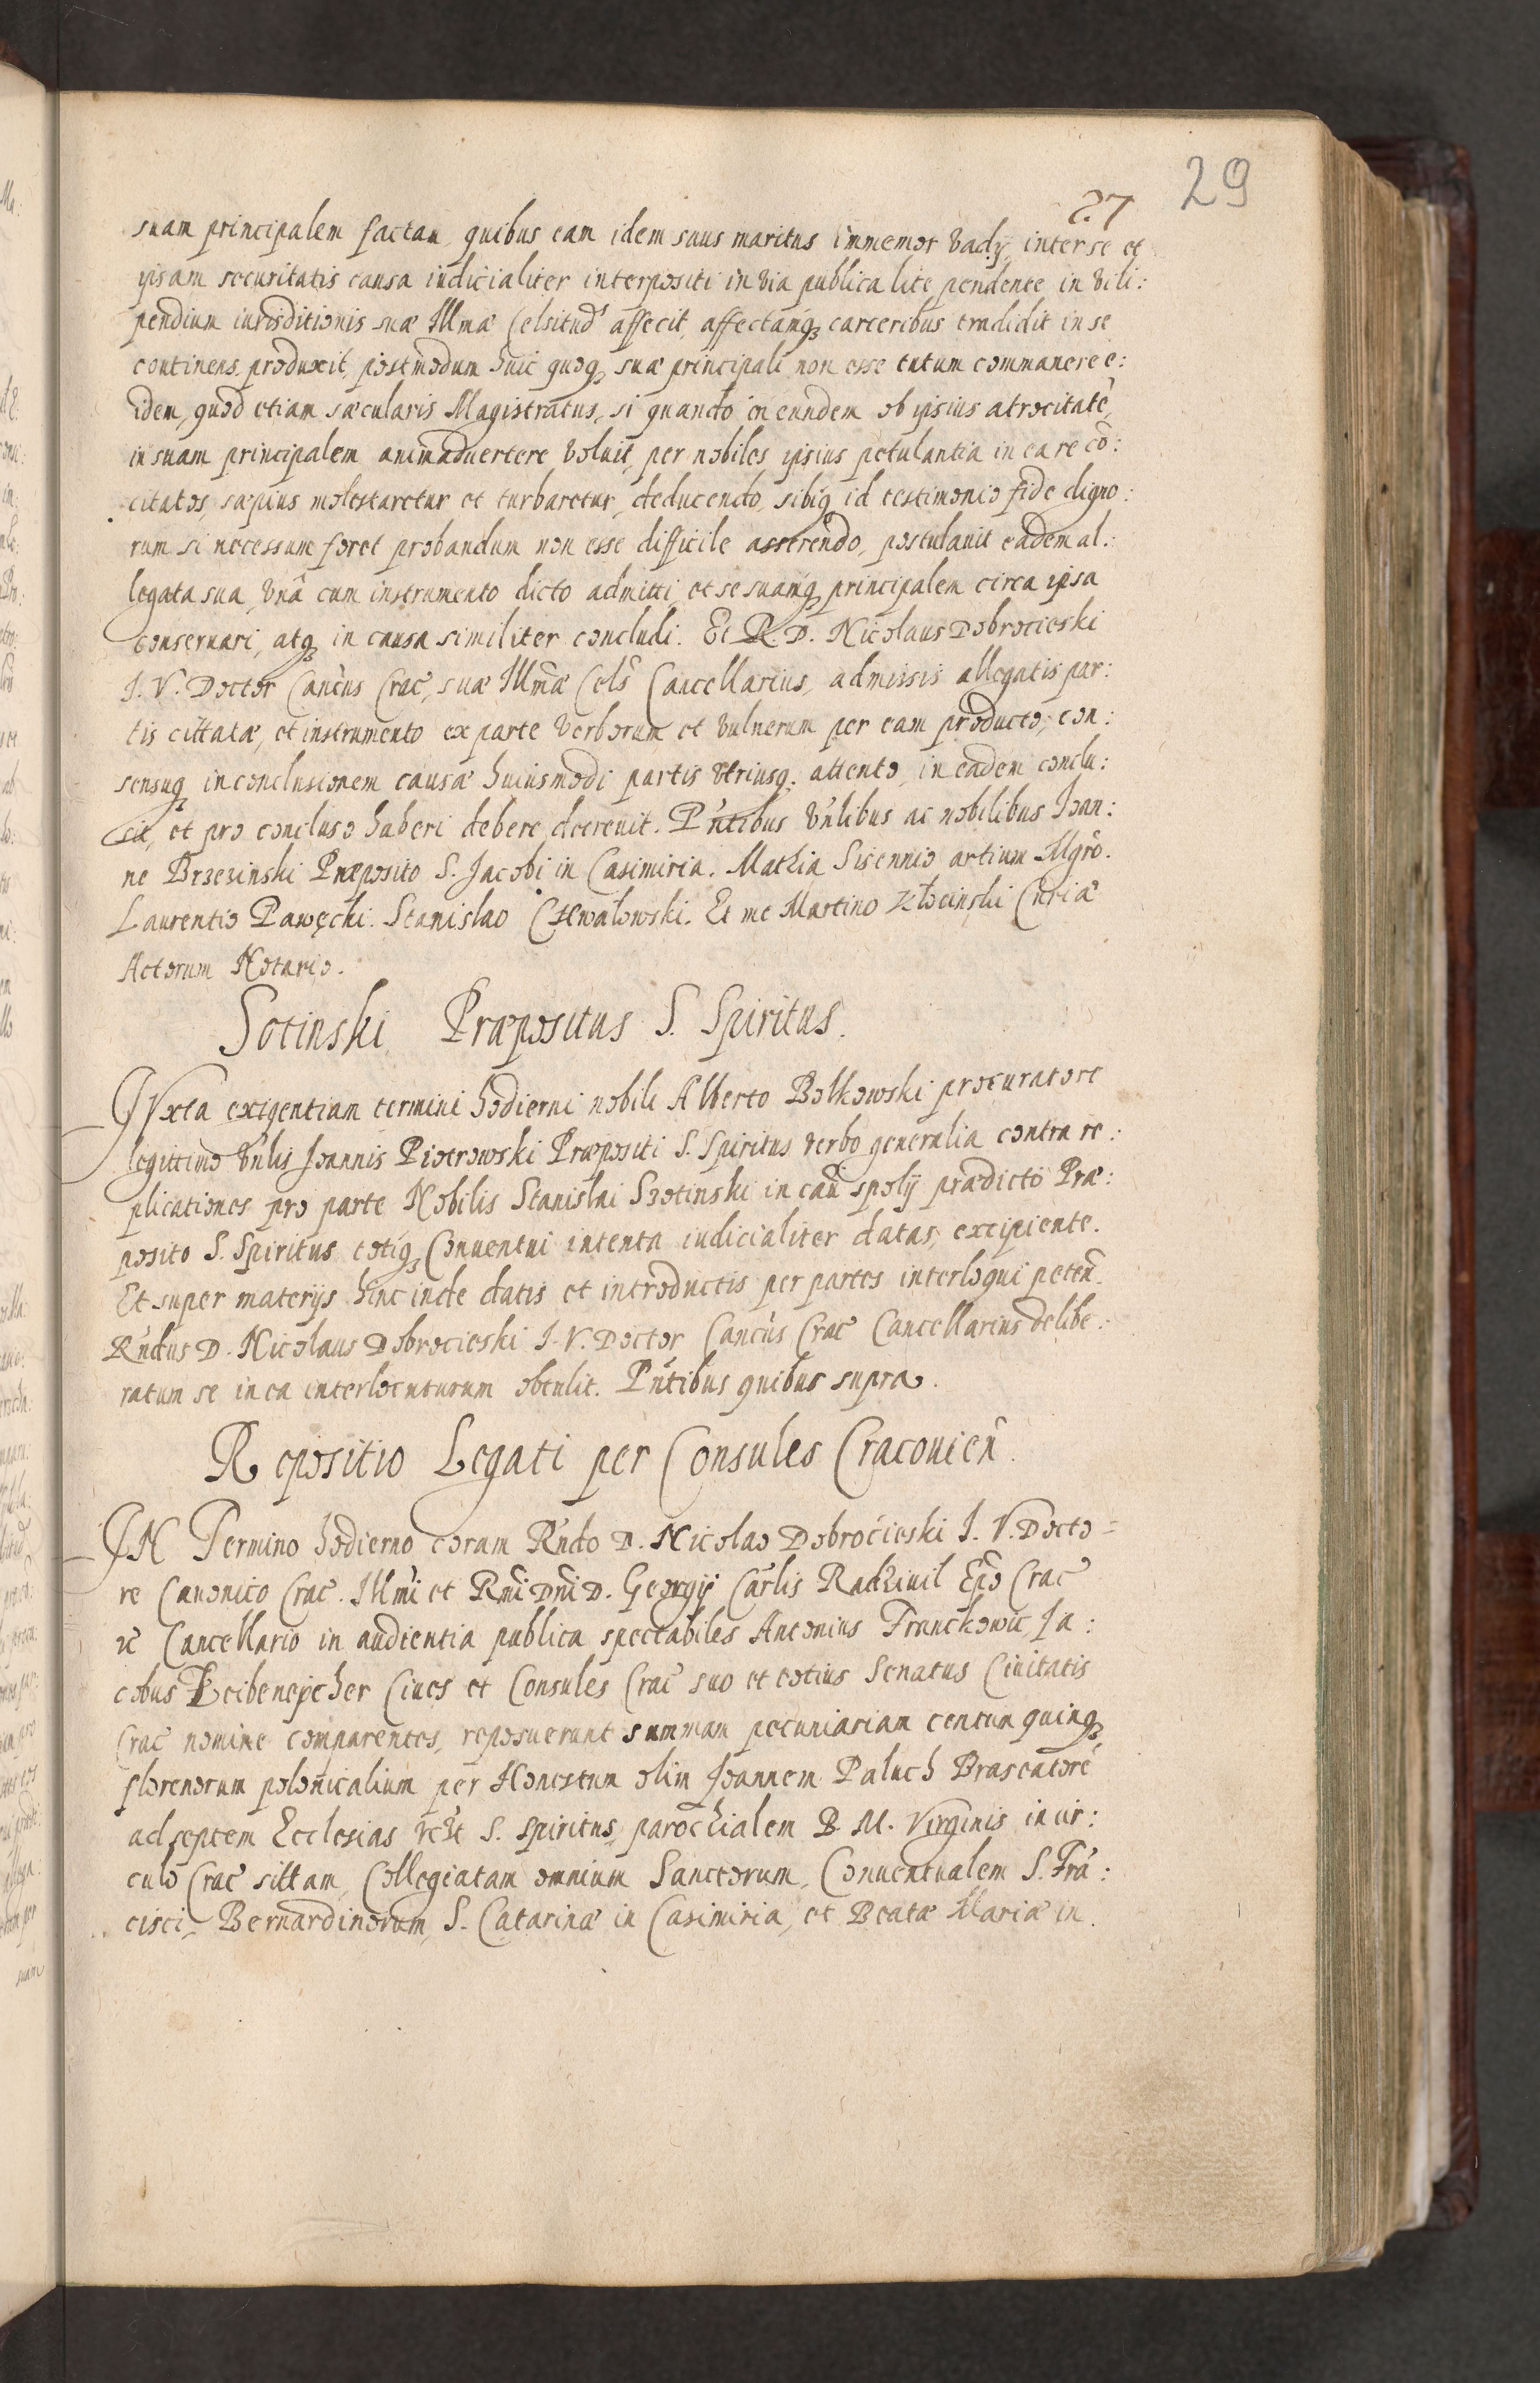 29
27
suam principalem factam, quibus eam idem suus maritus immemor vadij, inter se et
ipsam securitatis causa iudicialiter interpositi in via publica lite pendente in vili:
pendium iurisditionis suæ Illmæ Celsitud affecit, affectamq3 carceribus tradidit in se
continens, produxit, postmodum huic quoq3 suæ principali non esse tutum commanere e:
idem, quod etiam sæcularis Magistratus, si quando in eundem ob ipsius atrocitatē,
in suam principalem animaduertere voluit, per nobiles ipsius petulantia in ea re cō:
citatos, sæpius molestaretur et turbaretur, deducendo, sibiq3 id testimonio fide digno:
rum si necessum foret probandum non esse difficile asserendo, postulauit eadem al:
legata sua, vnâ cum instrumento dicto admitti, et se suamq3 principalem circa ipsa
conseruari, atq3 in causa similiter concludi. Et R. D. Nicolaus Dobrocieski
I. V. Doctor Cancūs Crac, suæ Illmæ Cels Cancellarius, admissis allegatis par:
tis cittatæ, et instrumento ex parte verborum et vulnerum per eam producto, con:
sensuq3 in conclusionem causæ huiusmodi partis vtriusq3 attento, in eadem conclu:
sit, et pro concluso haberi debere decreuit. Pntibus Vnlibus ac nobilibus Ioan:
ne Brzezinski Præposito S. Jacobi in Casimiria. Mathia Sisennio artium Mgrō.
Laurentio Pawęcki. Stanislao Chwalowski. Et me Martino Kłocinski Curiæ
Actorum Notario.
Sotinski Præpositus S. Spiritus.
IVxta exigentiam termini hodierni nobili Alberto Bolkowski procuratore
legittimo Vnlis Joannis Piotrowski Præpositi S. Spiritus verbo generalia contra re:
plicationes pro parte Nobilis Stanislai Szotinski in caū spolij prædicto Præ:
posito S. Spiritus totiq3 Conuentui intenta iudicialiter datas, excipiente.
Et super materijs hinc inde datis et introductis per partes interloqui peten̄.
Rndus D. Nicolaus Dobrocieski I. V. Doctor Cancūs Crac Cancellarius delibe:
ratum se in ea interlocuturum obtulit. Pntibus quibus supra.
Repositio Legati per Consules Cracouien̄.
IN Termino hodierno coram Rndo D. Nicolao Dobrocieski I. V. Docto=
re Canonico Crac. Illmi et Rmi Dni D. Georgij Carlis Radziuil Epo Crac
æ Cancellario in audientia publica spectabiles Antonius Franckowic, Ja:
cobus Ciues et Consules Crac suo et totius Senatus Ciuitatis
Crac nomine comparentes, reposuerunt summam pecuniariam centum quinq3
florenorum polonicalium per Honestum olim Joannem Paluch Braseatorē
ad septem Ecclesias S. Spiritus, parochialem B. M. Virginis in cir:
culo Crac sittam, Collegiatam omnium Sanctorum, Conuentualem S. Frā:
cisci, Bernardinorum, S. Catarinæ in Casimiria, et Beatæ Mariæ in